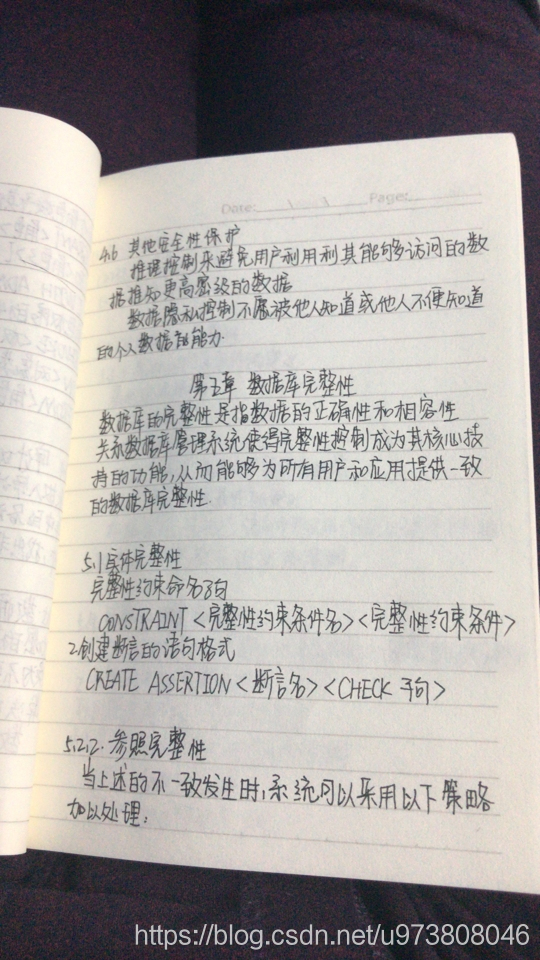 Date: Page:
4.6 其他安全性保护
推理控制来避免用户利用利其能够访问的数
据推知更高密级的数据
数据隐私控制不愿被他人知道或他人不便知道
的个人数据的能力.
第五章 数据库完整性
数据库的完整性是指数据的正确性和相容性
关系数据库管理系统使得完整性控制成为其核心支
持的功能,从而能够为所有用户和应用提供一致
的数据库完整性.
5.1 实体完整性
完整性约束命名子句
CONSTRAINT <完整性约束条件名> <完整性约束条件>
2.创建断言的语句格式
CREATE ASSERTION <断言名> <CHECK 子句>
5.2.2. 参照完整性
当上述的不一致发生时,系统可以采用以下策略
加以处理:
https://blog.csdn.net/u973808046